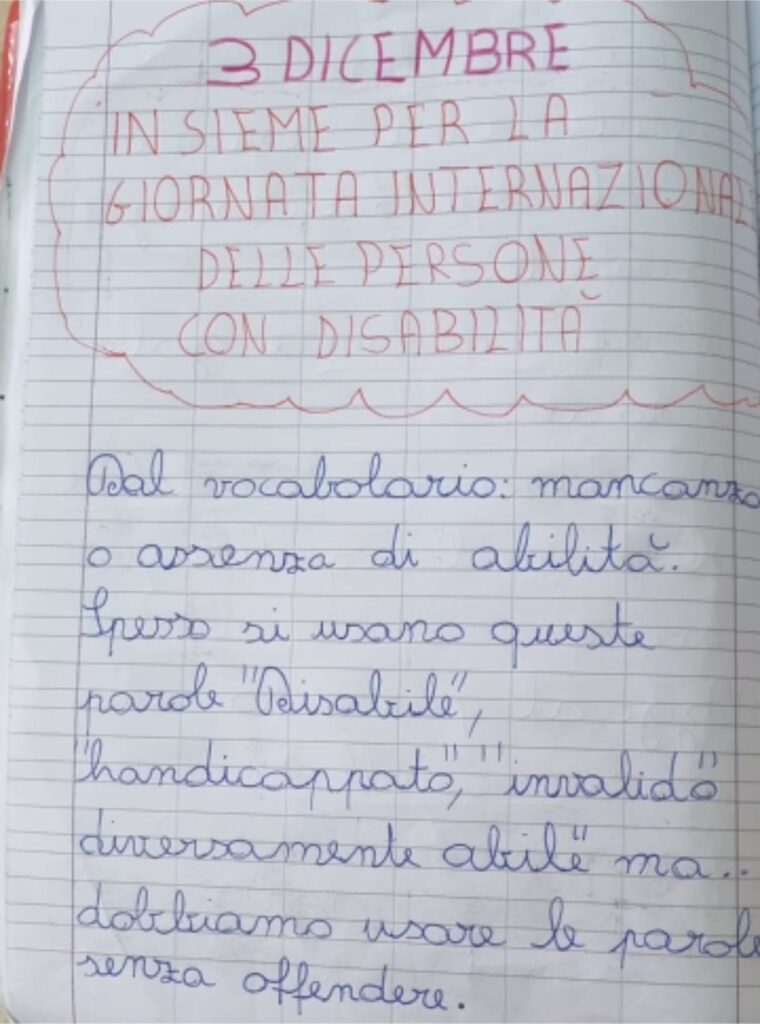 3 DICEMBRE
INSIEME PER LA
GIORNATA INTERNAZIONAL
DELLE PERSONE
CON DISABILITÀ
Dal vocabolario: mancanza
o assenza di abilità.
Spesso si usano queste
parole "Disabile",
"handicappato", "invalido"
diversamente abile" ma..
dobbiamo usare le parole
senza offendere.